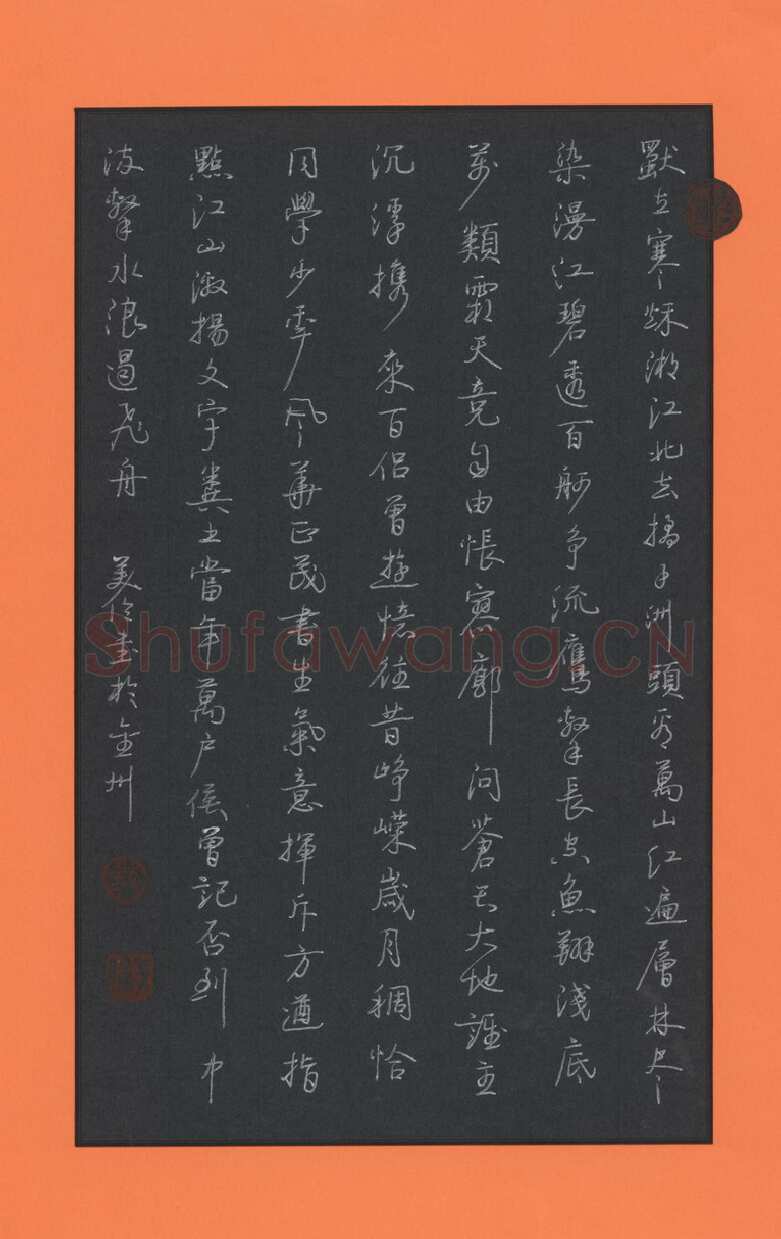 獨立寒秌湘江北去橘子洲頭看萬山紅遍層林盡
染漫江碧透百舸爭流鷹擊長空魚翔淺底
萬類霜天竞自由悵寥廓問蒼茫大地誰主
沉浮攜來百侶曾遊憶往昔崢嶸歲月稠恰
同學少年風華正茂書生氣意揮斥方遒指
點江山激揚文字糞土當年萬戶侯曾記否到中
流擊水浪遏飛舟
書於金州
Shufawang.CN